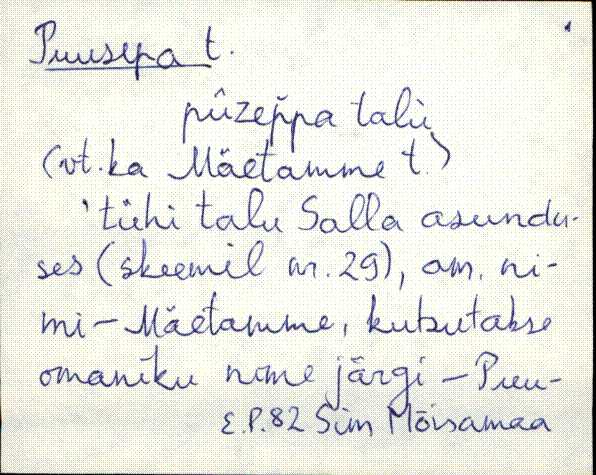 Puusepa t.
pûzep̆pa talù
(vt. ka Mäetamme t.)
'tühi talu Salla asundu-
ses (skeemil nr. 29), am. ni-
mi – Mäetamme, kutsutakse
omaniku nime järgi – Puu-
E.P.82 Sim Mõisamaa